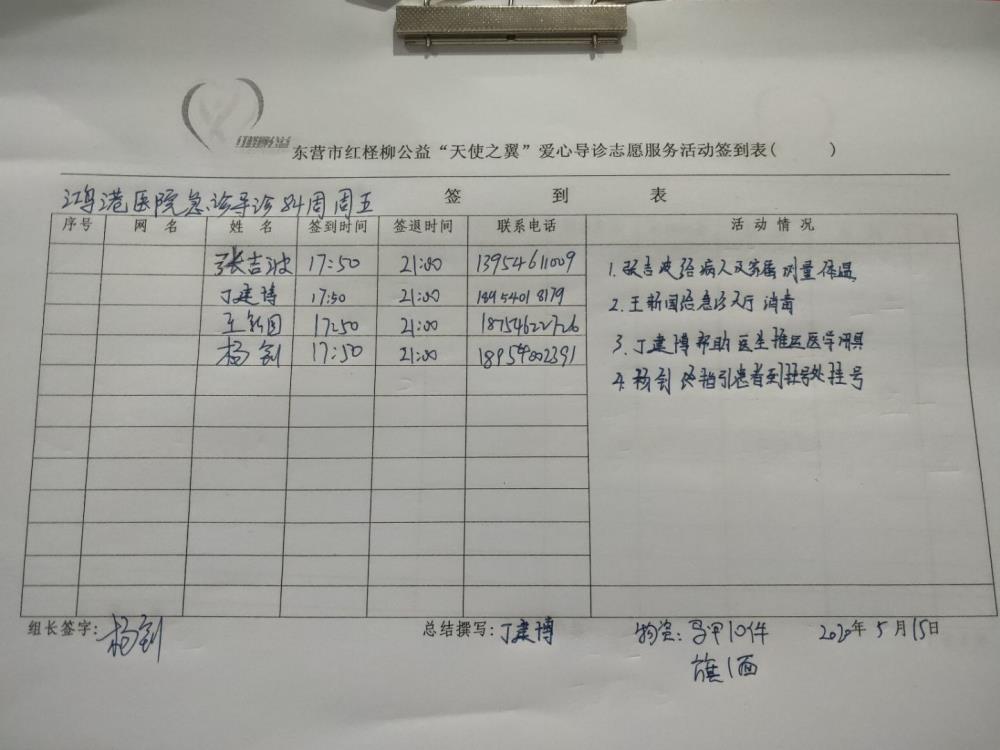 红柽柳公益
东营市红柽柳公益“天使之翼”爱心导诊志愿服务活动签到表( )
鸿港医院急诊导诊84周周五 签 到 表
序号 网 名 姓 名 签到时间 签退时间 联系电话 活 动 情 况
张吉波 17:50 21:00 13954611009
丁建博 17:50 21:00 18954018179
王新国 17:50 21:00 18754622726
杨剑 17:50 21:00 18954002391
1.张吉波给病人及家属测量体温
2.王新国给急诊大厅消毒
3.丁建博帮助医生推运医学用具
4.杨剑 指引患者到挂号处挂号
组长签字:杨剑 总结撰写:丁建博 物资:马甲10件 2020年5月15日
旗1面